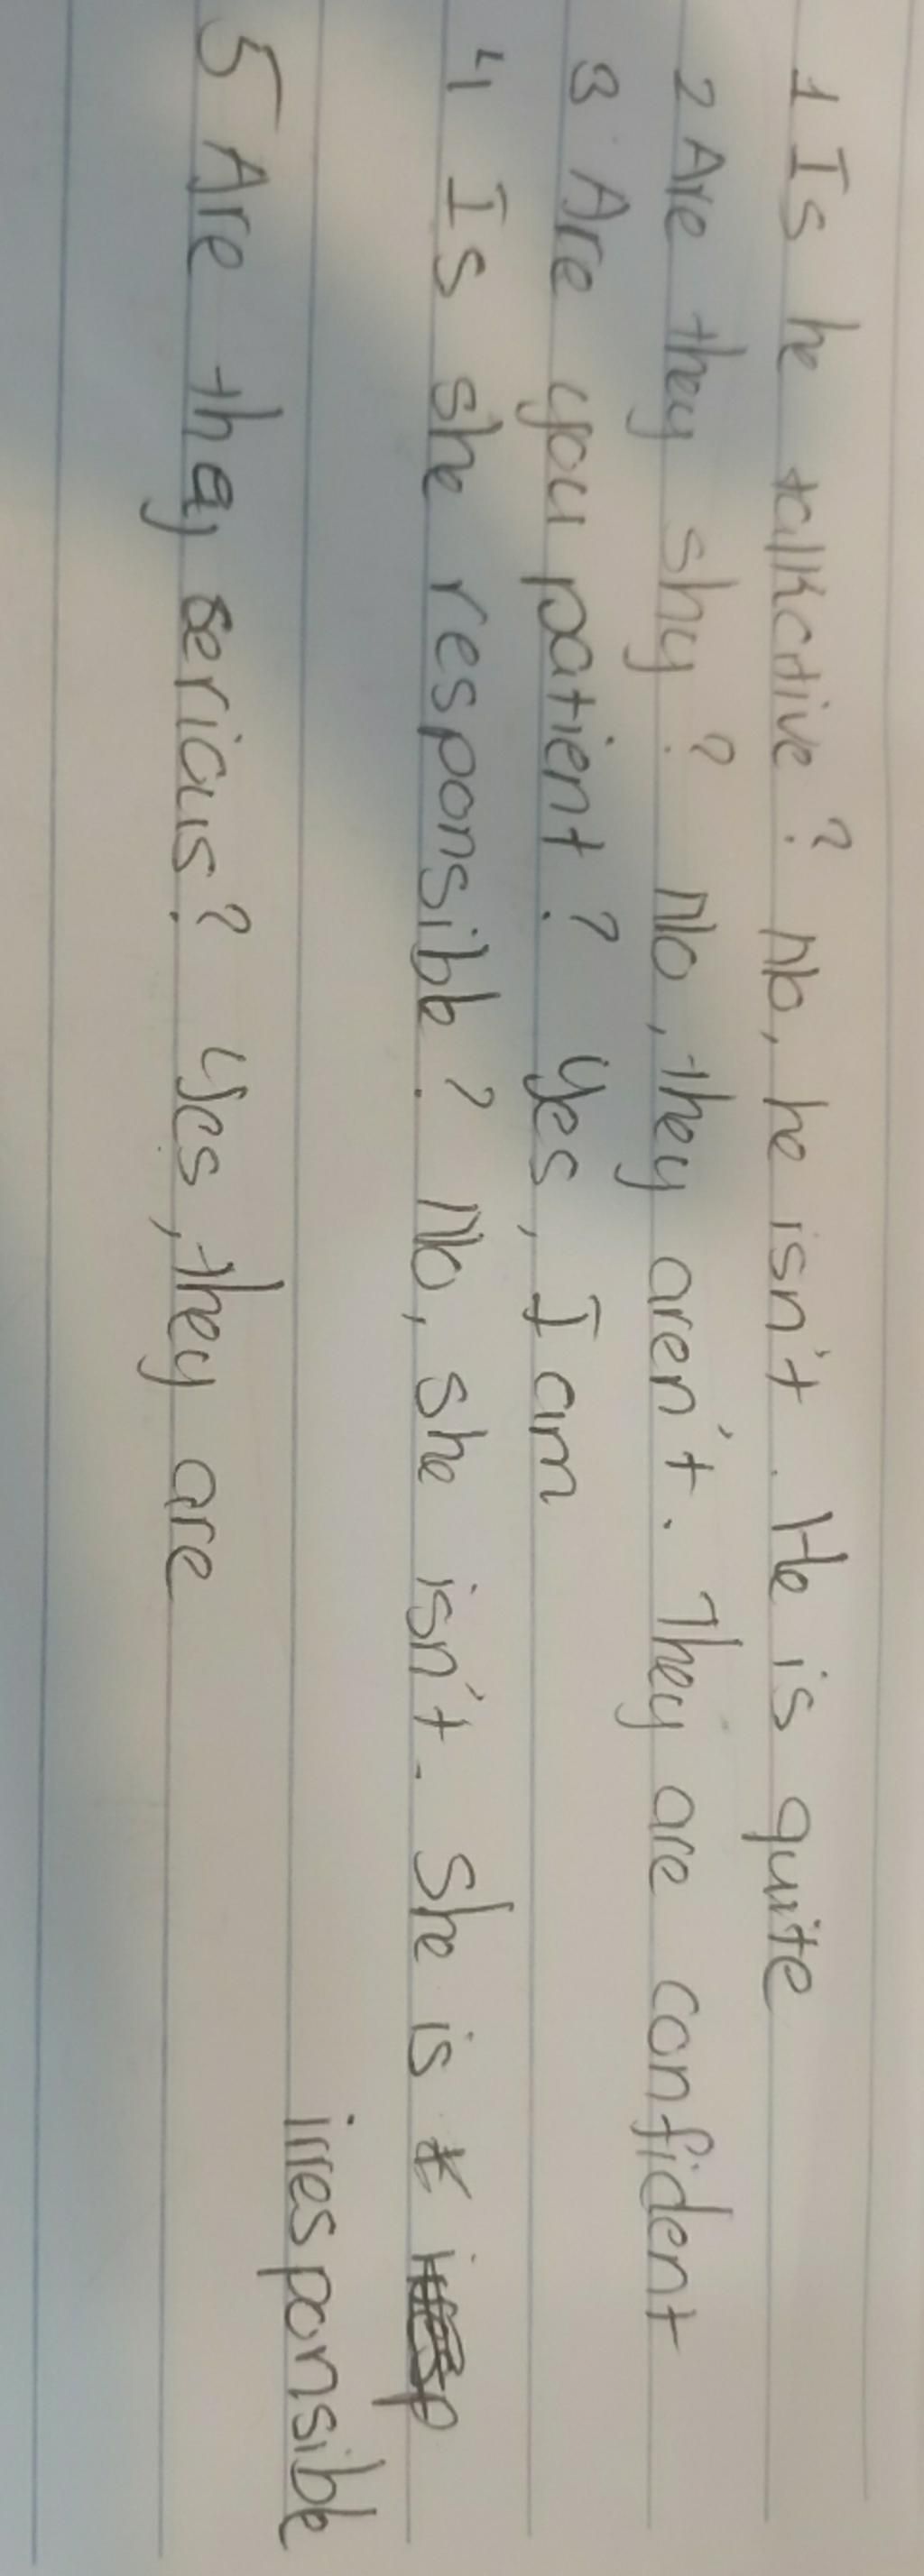 1 Is he talkative? No, he isn't. He is quite
2 Are they shy? No, they aren't. They are confident
3 Are you patient? Yes, I am
4 Is she responsible? No, she isn't. She is
irresponsible
5 Are they serious? Yes, they are